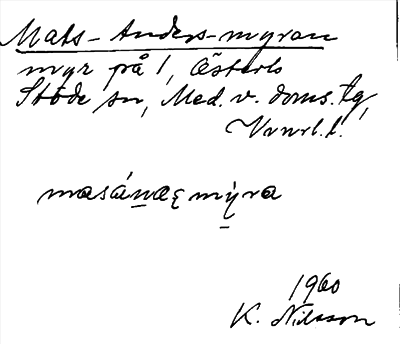 Mats-Anders-myran
myr på 1, Österlo
Stöde sn, Med. v. doms. tg,
Vnnrl. l.
masánaęmyra
1960
K. Nilsson